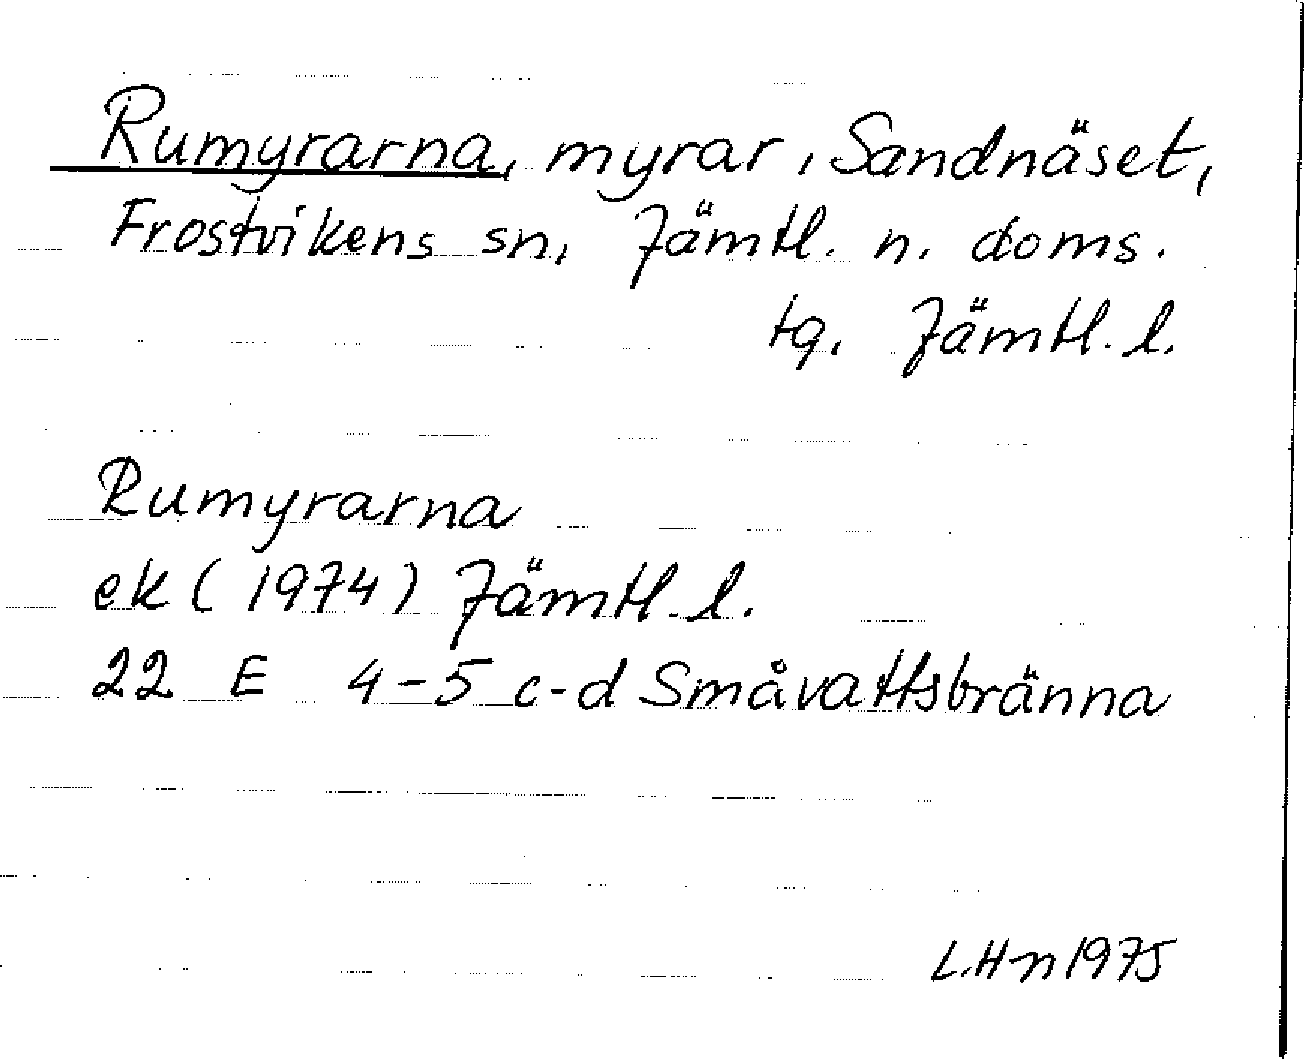 Rumyrarna, myrar, Sandnäset,
Frostvikens sn, Jämtl. n. doms.
tq. Jämtl. l.
Rumyrarna
ek (1974) Jämtl. l.
22 E 4-5 c-d Småvattsbränna
L.Hn 1975